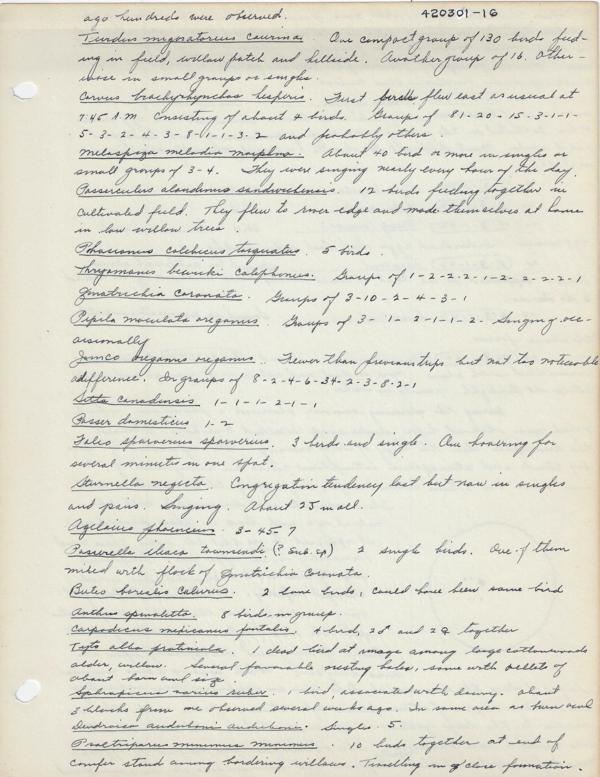 ago hundreds were observed.
420301-16
Turdus migratorius caurinus. One compact group of 130 birds feed-
ing in field, willow patch and hillside. Another group of 16. Other-
wise in small groups or singles.
Corvus brachyrhynchos hesperis. First birds flew east as usual at
7:45 A.M. consisting of about 4 birds. Groups of 81-20-15-3-1-1-
5-3-2-4-3-8-1-1-3-2 and probably others.
Melospiza melodia morphna. About 40 bird or more in singles or
small groups of 3-4. They were singing nearly every hour of the day.
Passerculus alaudinus sandwichensis. 12 birds feeding together in
cultivated field. They flew to river edge and made themselves at home
in low willow trees.
Phasianus colchicus torquatus. 5 birds.
Thryomanes bewicki calophonus. Groups of 1-2-2-2-1-2-2-2-2-1
Zonotrichia coronata. Groups of 3-10-2-4-3-1
Pipilo maculata oregonus. Groups of 3-1-2-1-1-2. Singing occ-
assionally
Junco oreganus oreganus. Fewer than previous trips but not too noticeable
a difference. In groups of 8-2-4-6-34-2-3-8-2-1
Sitta canadensis 1-1-1-2-1-1
Passer domesticus 1-2
Falco sparverius sparverius. 3 birds and single. One hovering for
several minutes in one spot.
Sturnella neglecta. Congregation tendency last but now in singles
and pairs. Singing. About 25 in all.
Agelaius phoeniceus 3-45-7
Passerella iliaca townsendi (? Sub. sp) 2 single birds. One of them
mixed with flock of Zonotrichia Coronata.
Buteo borealis calurus. 2 lone birds, could have been same bird
Anthus spinoletta. 8 birds in group.
Carpodacus mexicanus frontalis. 4 bird, 2♂ and 2♀ together
Tyto alba pratincola. 1 dead bird at among large cottonwoods
alder, willow. Several favorable nesting holes, some with pellets of
about barn owl size.
Sphrapicus varius ruber. 1 bird, associated with downy. about
3 blocks from one observed several weeks ago. In same area as barn owl
Dendroica auduboni auduboni. Singles. 5.
Psaltriparus minimus minimus. 10 birds together at end of
conifer stand among bordering willows. Travelling in close formation.